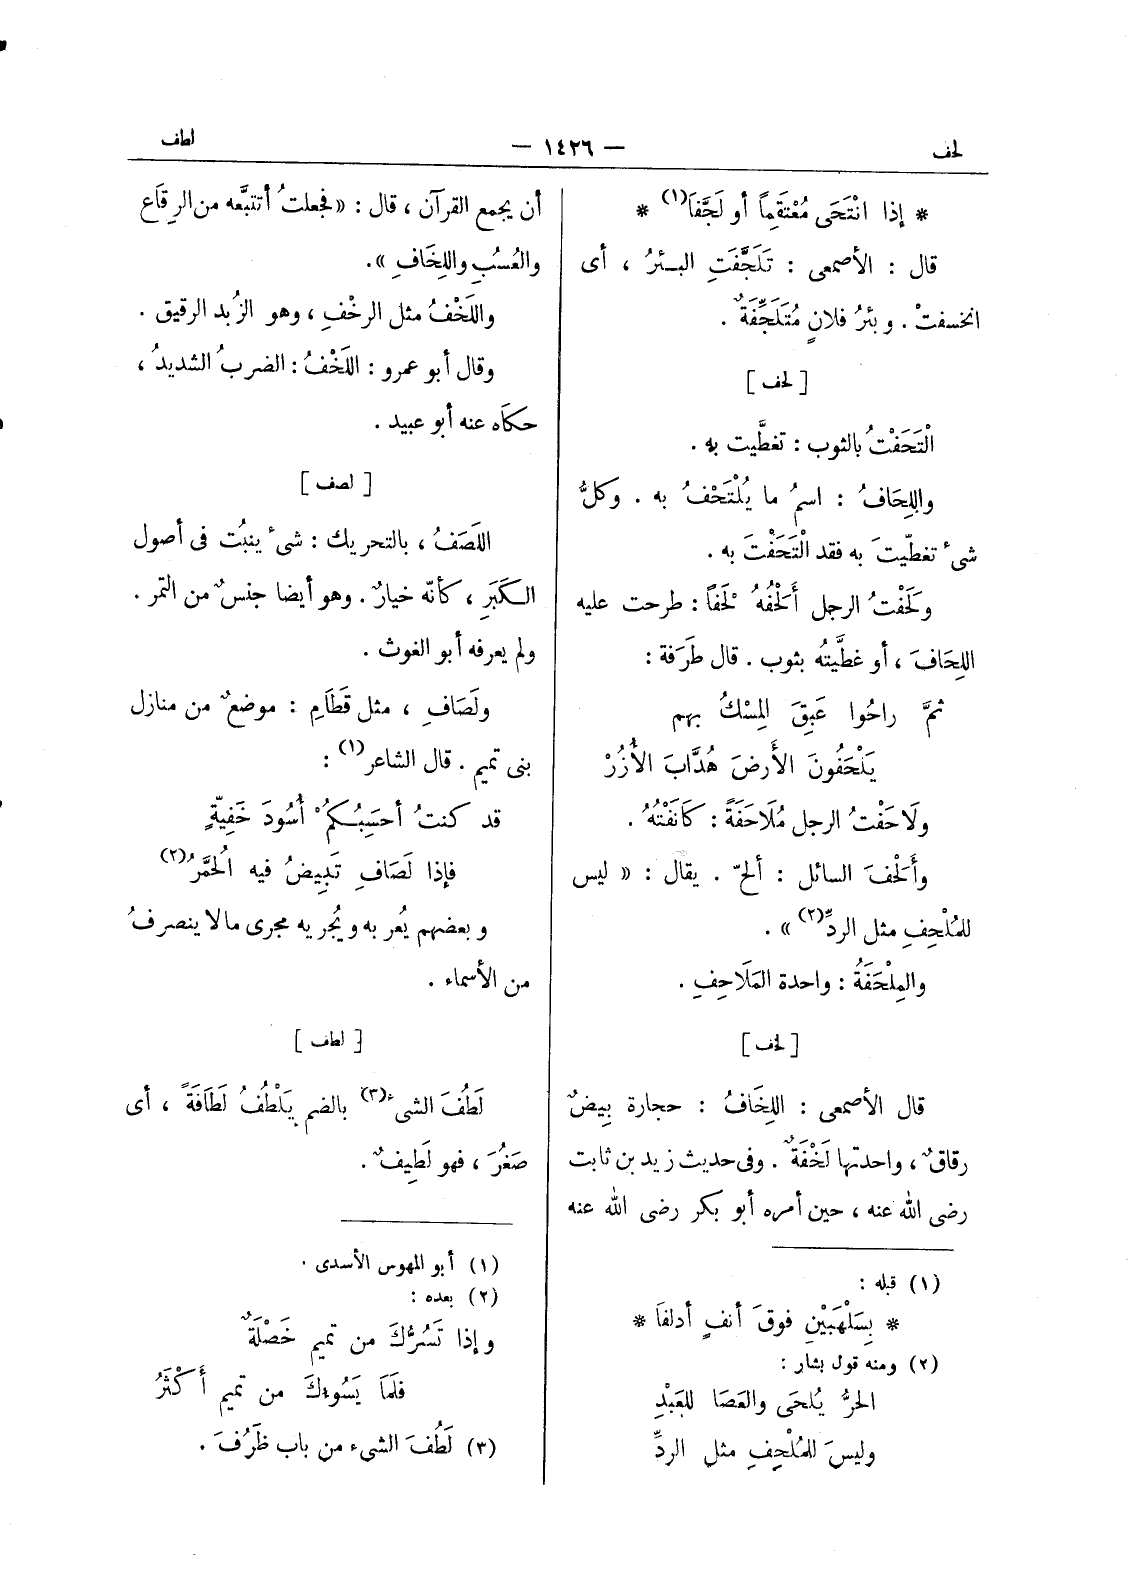 لحف
— ١٤٢٦ —
لطف
* إذا انْتَحَى مُعْتَقِماً أو لَجَّفَا(١) *
قال : الأصمعى : تَلَجَّفَتِ البـئرُ ، أى
انخسفتْ . وبئرُ فلانٍ مُتَلَجِّفَةٌ .
[ لحف ]
الْتَحَفْتُ بالثوب : تغطَّيت به .
واللِحَافُ : اسمُ ما يُلْتَحَفُ به . وكلُّ
شىءٍ تغطّيتَ به فقد الْتَحَفْتَ به .
ولَحَفْتُ الرجل أَلْحَفُهُ لَحْفاً : طرحت عليه
اللِحَافَ ، أو غطَّيتُه بثوب . قال طَرَفة :
ثمَّ راحُوا عَبِقَ المِسْكُ بهم
يَلْحَفُونَ الأَرضَ هُدَّابَ الأُزُرْ
ولَاحَفْتُ الرجل مُلَاحَفَةً : كَانَفْتُهُ .
وأَلْحَفَ السائل : ألحّ . يقال : « ليس
للمُلْحِفِ مثل الردِّ(٢) » .
والمِلْحَفَةُ : واحدة المَلَاحِفِ .
[ لخف ]
قال الأصمعى : اللِخَافُ : حجارة بِيضٌ
رقاقٌ ، واحدتها لَخْفَةٌ . وفى حديث زيد بن ثابت
رضى الله عنه ، حين أمره أبو بكر رضى الله عنه
(١) قبله :
* بِسَلْهَبَيْنِ فوقَ أنفٍ أدلفَا *
(٢) ومنه قول بشار :
الحرُّ يُلحَى والعَصَا للعَبْدِ
وليسَ للمُلْحِفِ مثل الردِّ
أن يجمع القرآن ، قال : « فجعلتُ أتتبَّعه من الرِقاع
والعُسُبِ واللِخَافِ ».
واللَخْفُ مثل الرخْفِ ، وهو الزُبد الرقيق .
وقال أبو عمرو : اللَخْفُ : الضربُ الشديدُ ،
حكَاه عنه أبو عبيد .
[ لصف ]
اللَصَفُ ، بالتحريك : شىءٌ ينبُت فى أصول
الـكَبَرِ ، كأنّه خيارٌ . وهو أيضا جنسٌ من التمر .
ولم يعرفه أبو الغوث .
ولَصَافِ ، مثل قَطَامِ : موضعٌ من منازل
بنى تميم . قال الشاعر(١) :
قد كنتُ أحسَِبُـكمُْ أُسُودَ خَفِيَّةٍ
فإذا لَصَافِ تَبِيضُ فيه الُحَمَّرُ(٢)
وبعضهم يُعربه ويُجريه مجرى مالا ينصرفُ
من الأسماء .
[ لطف ]
لَطُفَ الشىء(٣) بالضم يَلْطُفُ لَطَافَةً ، أى
صَغُرَ ، فهو لَطِيفٌ .
(١) أبو المهوس الأسدى .
(٢) بعده :
وإذا تَسُرُّكَ من تميمٍ خَصْلَةٌ
فلَمَا يَسُوءكَ من تميمٍ أَكْثَرُ
(٣) لَطُفَ الشىء من باب ظَرُفَ .